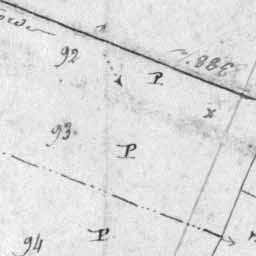 92
P
388.
x
93.
P
94
P